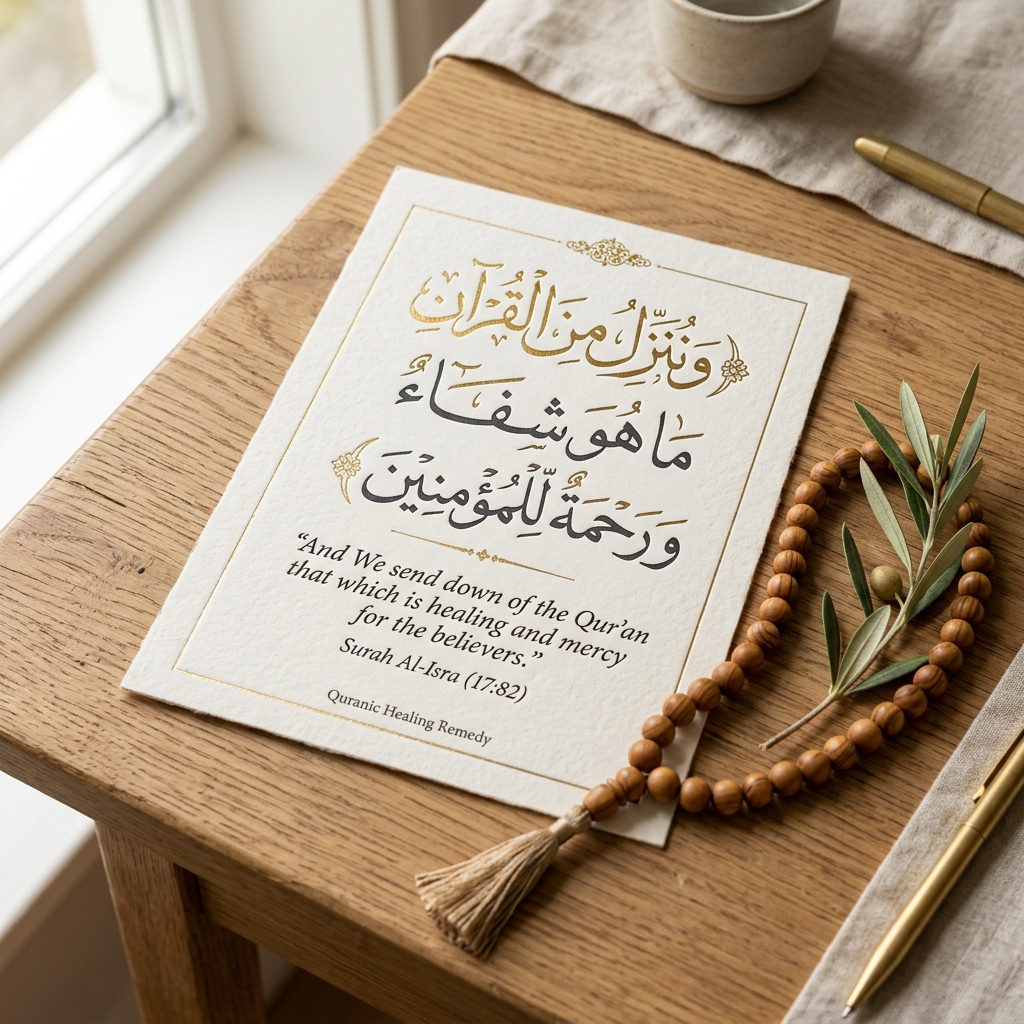 وَنُنَزِّلُ مِنَ الْقُرْآنِ
مَا هُوَ شِفَاءٌ
وَرَحْمَةٌ لِّلْمُؤْمِنِيْنَ
“And We send down of the Qur’an
that which is healing and mercy
for the believers.”
Surah Al-Isra (17:82)
Quranic Healing Remedy